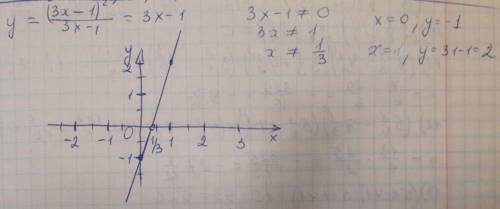 y = (3x-1)²/3x-1 = 3x-1
3x-1≠0
3x≠1
x≠1/3
x=0, y=-1
x=1, y=3·1-1=2
y
2
1
-2 -1 0 1/3 1 2 3 x
-1